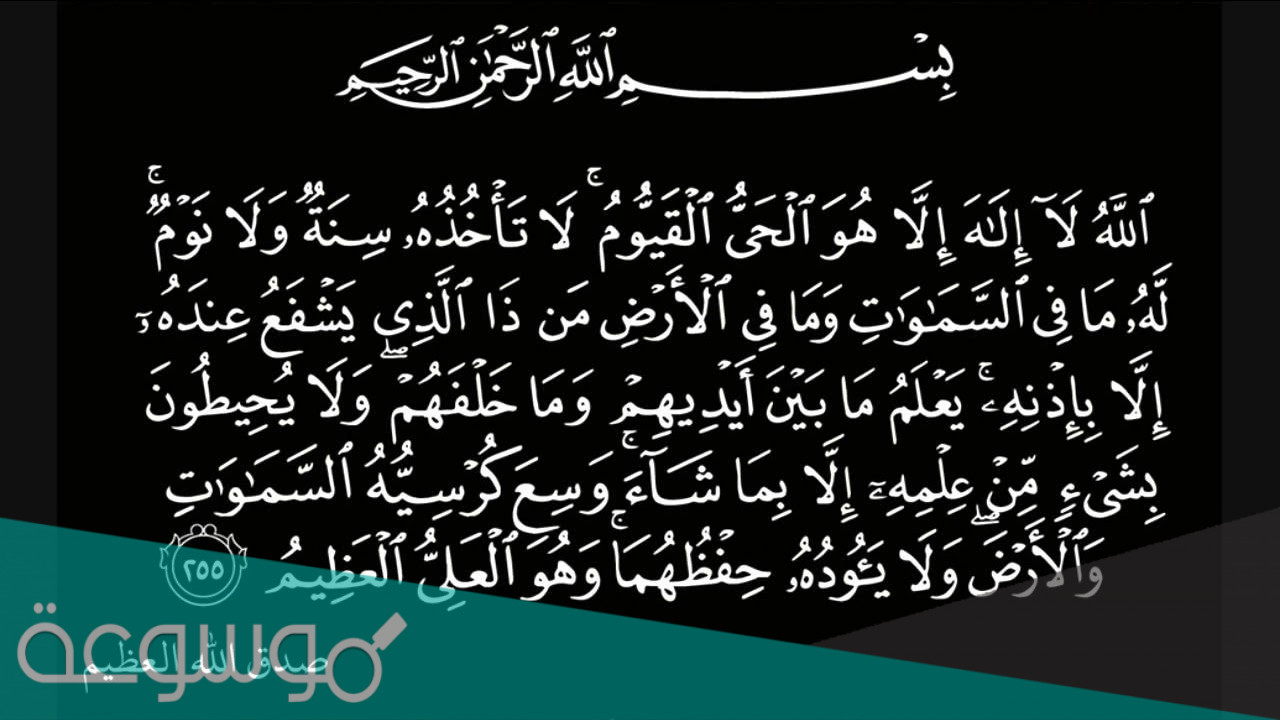 بِسْمِ ٱللَّهِ ٱلرَّحْمَٰنِ ٱلرَّحِيمِ
ٱللَّهُ لَآ إِلَٰهَ إِلَّا هُوَ ٱلْحَىُّ ٱلْقَيُّومُ ۚ لَا تَأْخُذُهُۥ سِنَةٌ وَلَا نَوْمٌ ۚ
لَّهُۥ مَا فِى ٱلسَّمَٰوَٰتِ وَمَا فِى ٱلْأَرْضِ مَن ذَا ٱلَّذِى يَشْفَعُ عِندَهُۥٓ
إِلَّا بِإِذْنِهِۦ ۚ يَعْلَمُ مَا بَيْنَ أَيْدِيهِمْ وَمَا خَلْفَهُمْ ۖ وَلَا يُحِيطُونَ
بِشَىْءٍ مِّنْ عِلْمِهِۦٓ إِلَّا بِمَا شَآءَ ۚ وَسِعَ كُرْسِيُّهُ ٱلسَّمَٰوَٰتِ
وَٱلْأَرْضَ ۖ وَلَا يَـُٔودُهُۥ حِفْظُهُمَا ۚ وَهُوَ ٱلْعَلِىُّ ٱلْعَظِيمُ ٢٥٥
صدق الله العظيم
موسوعة